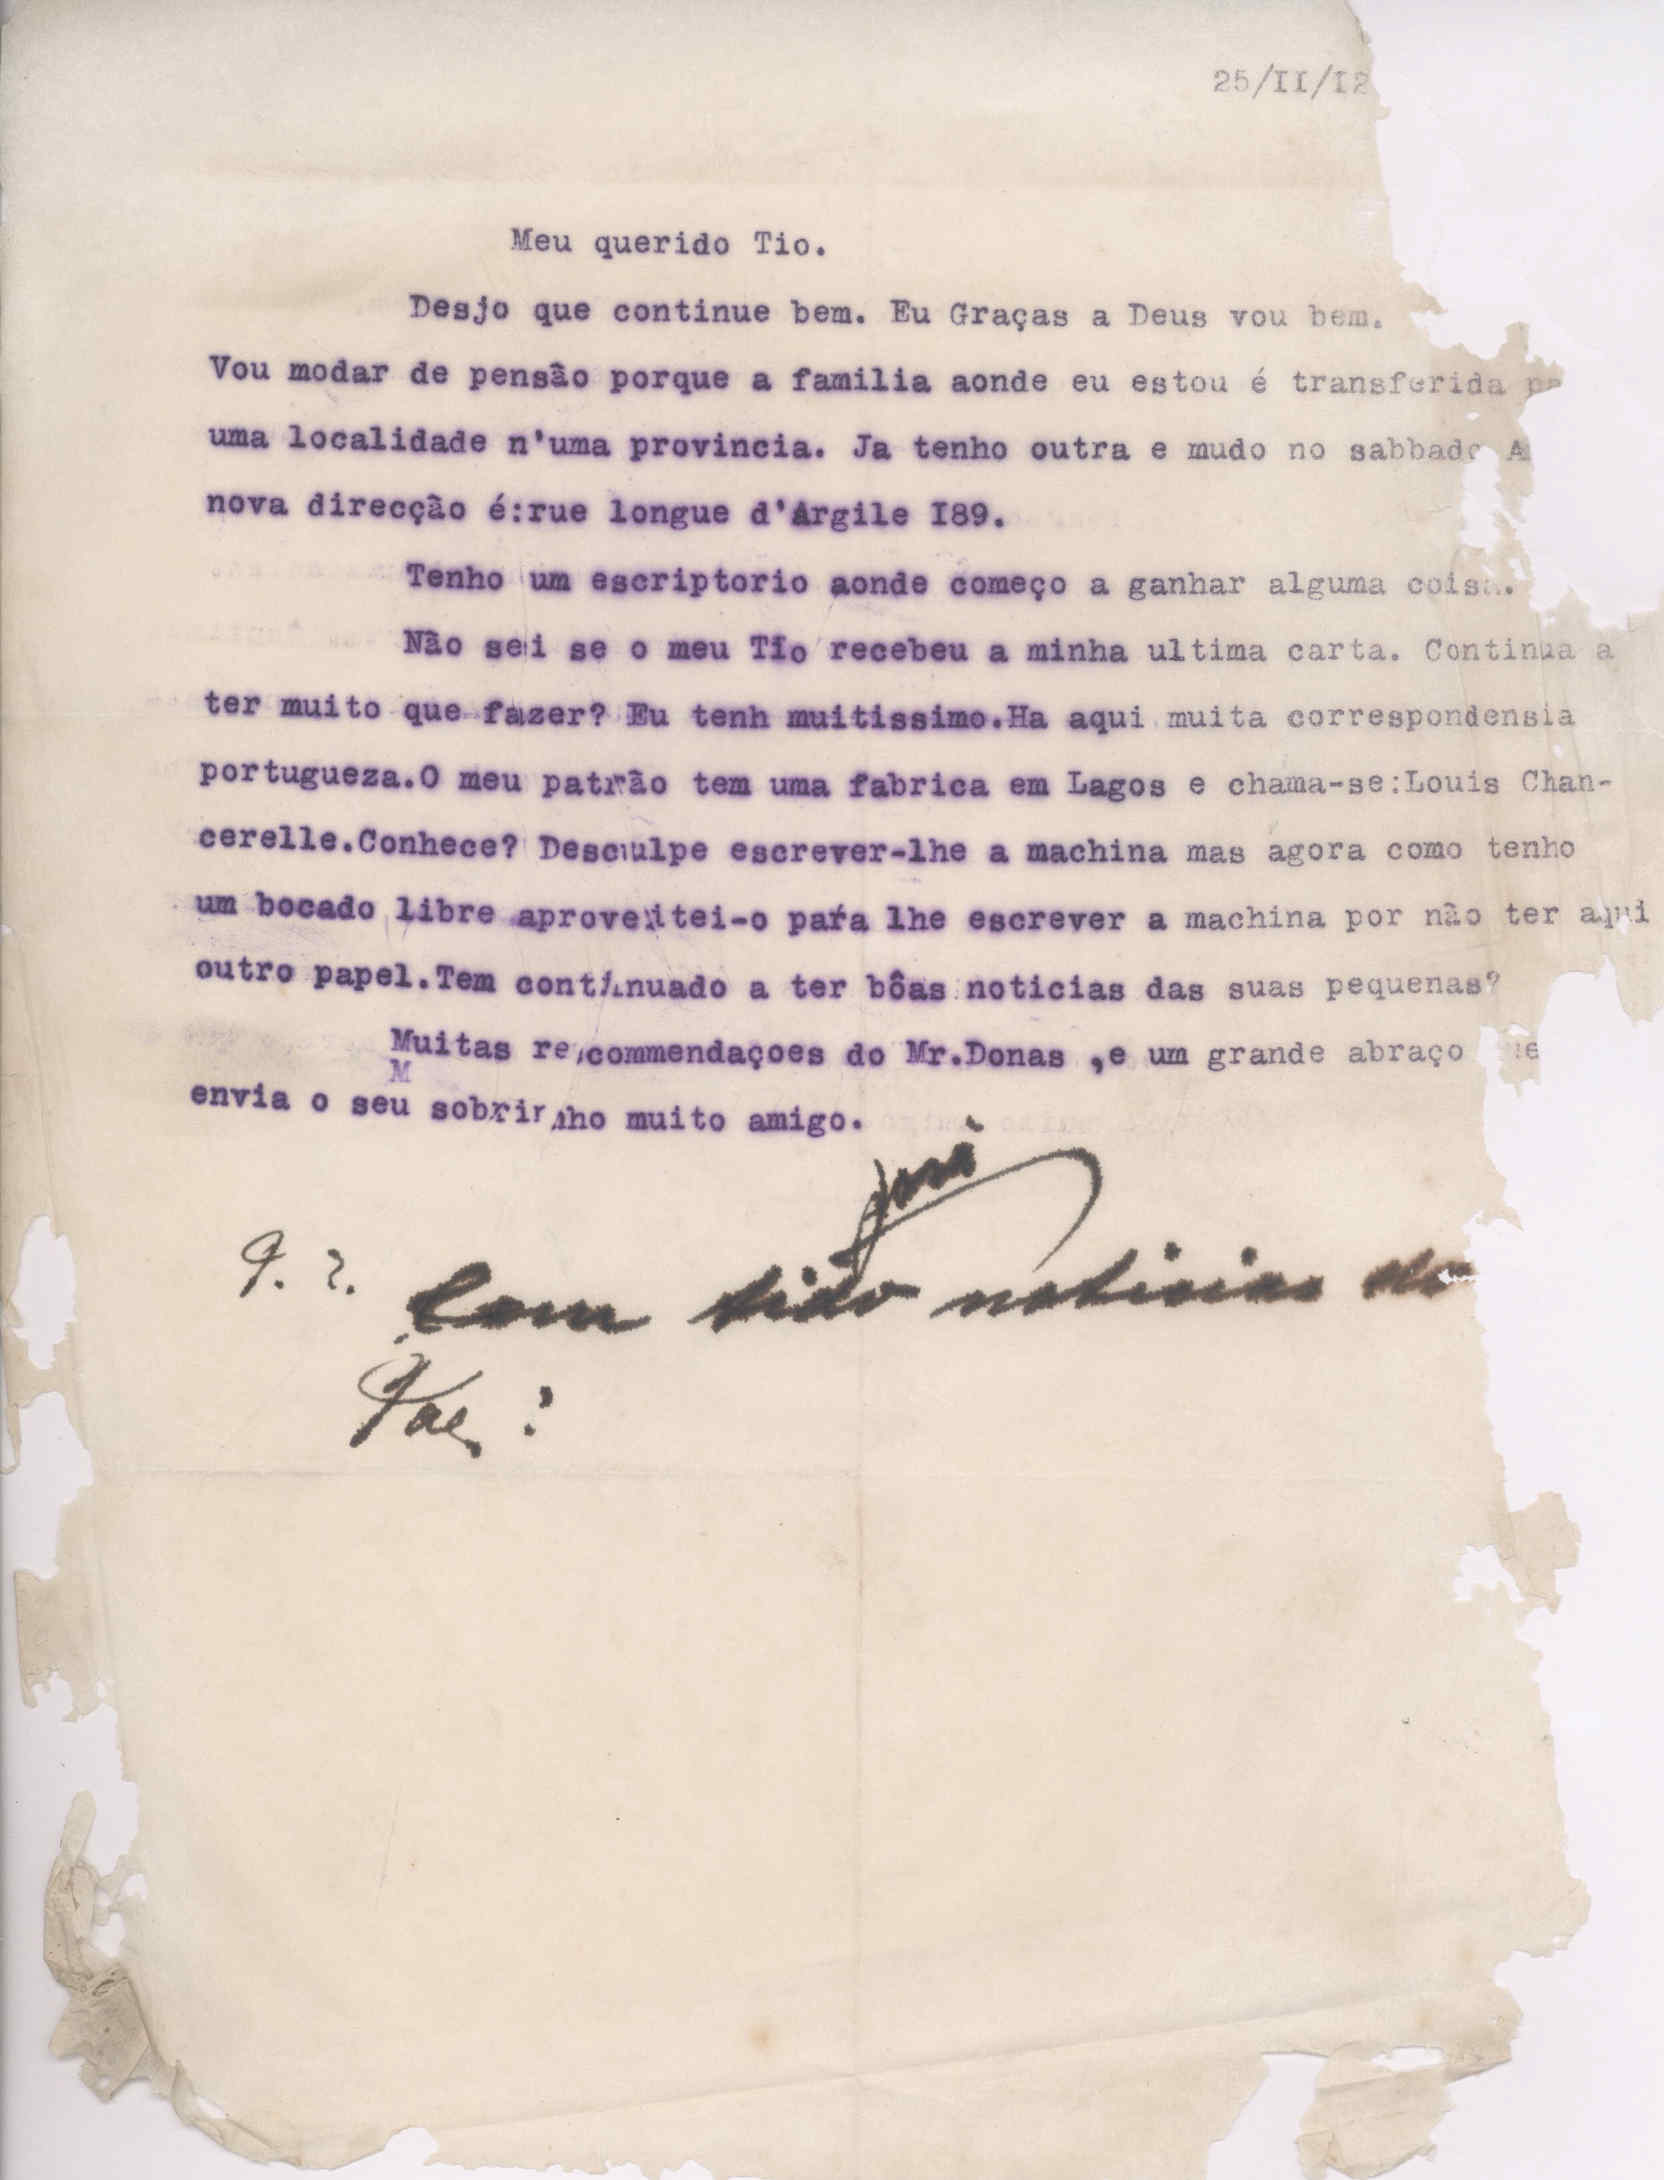 25/II/12
Meu querido Tio.
Desjo que continue bem. Eu Graças a Deus vou bem.
Vou modar de pensão porque a familia aonde eu estou é transferida
uma localidade n'uma provincia. Ja tenho outra e mudo no sabbado A
nova direcção é:rue longue d'Argile I89.
Tenho um escriptorio aonde começo a ganhar alguma coisa.
Não sei se o meu Tio recebeu a minha ultima carta. Continua a
ter muito que fazer? Eu tenh muitissimo.Ha aqui muita correspondensia
portugueza.O meu patrão tem uma fabrica em Lagos e chama-se:Louis Chan-
cerelle.Conhece? Desculpe escrever-lhe a machina mas agora como tenho
um bocado libre aproveitei-o para lhe escrever a machina por não ter aqui
outro papel.Tem continuado a ter bôas noticias das suas pequenas?
Muitas recommendaçoes do Mr.Donas ,e um grande abraço
M
envia o seu sobrinho muito amigo.
José
P. S. Tem tido noticias do
Pae?